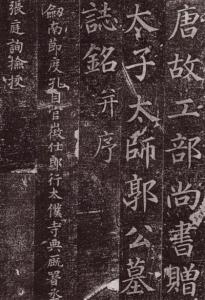 唐故工部尚書贈
太子太師郭公墓
誌銘并序
劒南節度孔目官徵仕郎行太僕寺典廐署丞
張庭詢撰